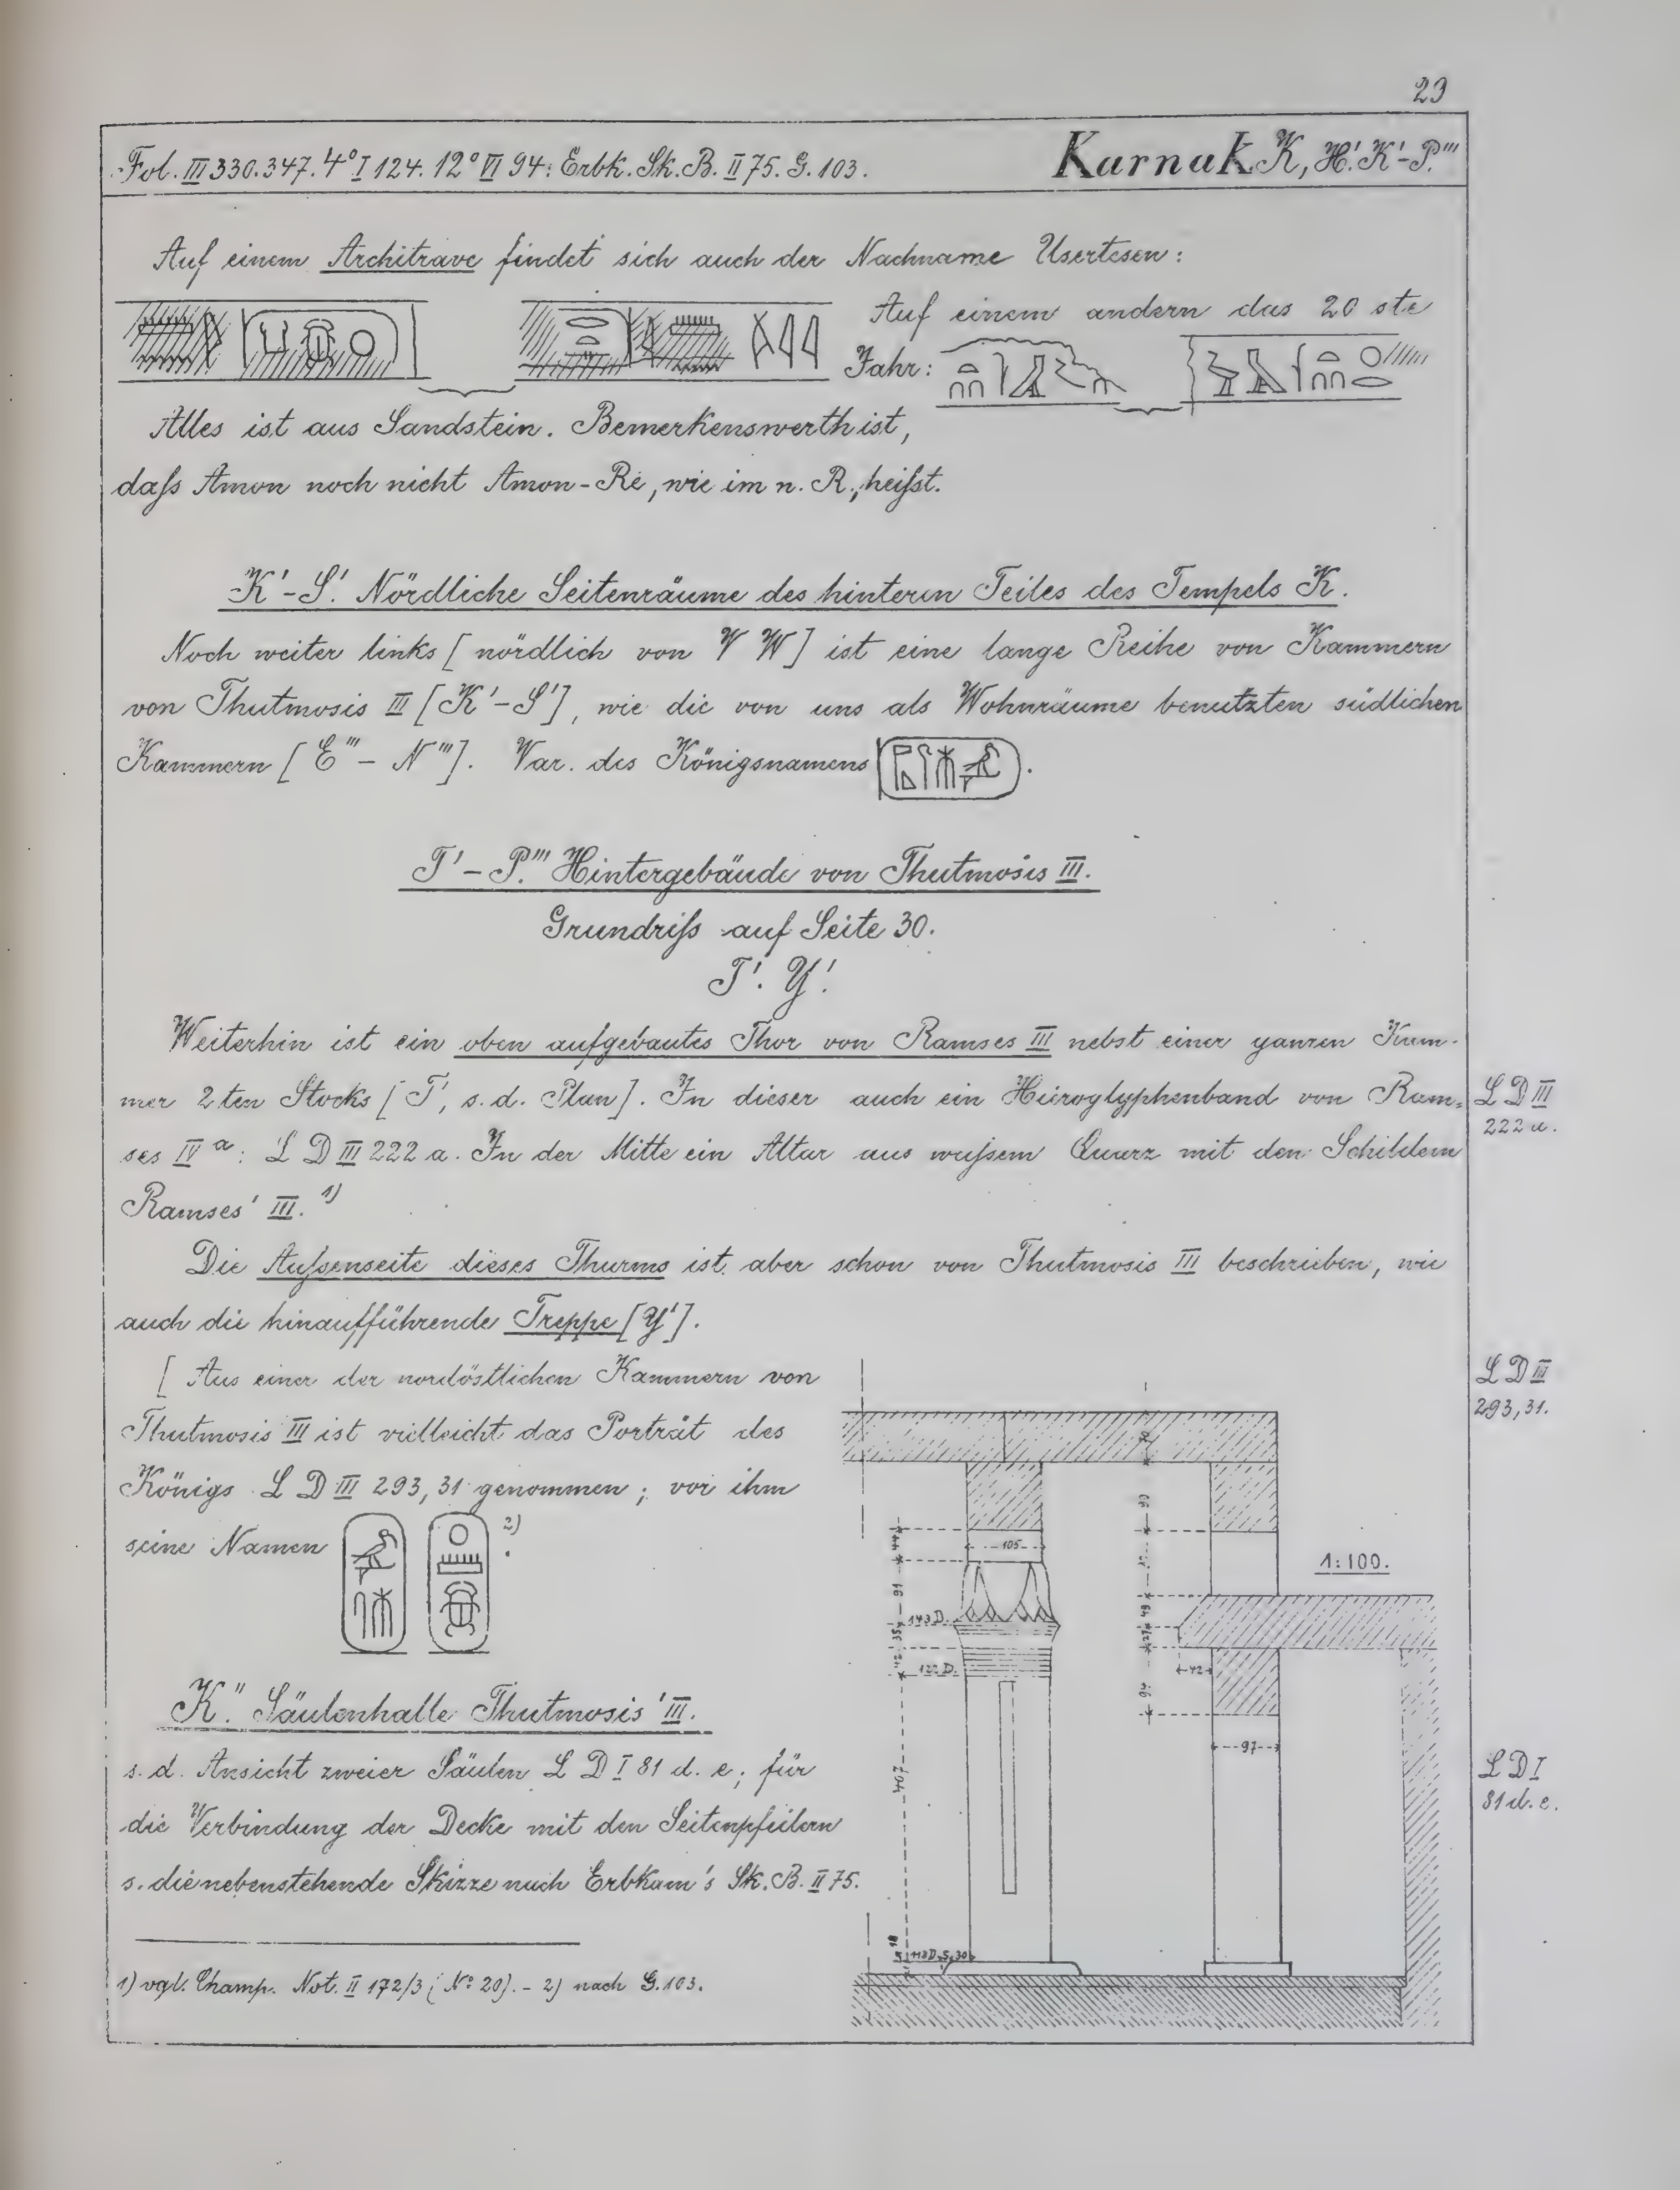 23
Fol. III 330. 347. 4° I 124. 12° VI 94. Erbk. Sk. B. II 75. G. 103.
Karnak K, H'. K'-P'''
Auf einem Architrave findet sich auch der Nachname Usertesen:
Auf einem andern das 20 ste
Jahr:
Alles ist aus Sandstein. Bemerkenswerth ist,
daſs Amon noch nicht Amon-Re, wie im n. R., heiſst.
K'-S'. Nördliche Seitenräume des hintern Teiles des Tempels K.
Noch weiter links [nördlich von V W] ist eine lange Reihe von Kammern
von Thutmosis III [K'-S'], wie die von uns als Wohnräume benutzten südlichen
Kammern [E''' - N''']. Var. des Königsnamens
T' - P'''. Hintergebäude von Thutmosis III.
Grundriſs auf Seite 30.
T'. Y'.
Weiterhin ist ein oben aufgebautes Thor von Ramses III nebst einer ganzen Kam-
mer 2ten Stocks [T', s. d. Plan]. In dieser auch ein Hieroglyphenband von Ram-
LD III
222 a.
ses IV a: LD III 222 a. In der Mitte ein Altar aus weiſsem Quarz mit den Schildern
Ramses' III. 1)
Die Auſsenseite dieses Thurms ist aber schon von Thutmosis III beschrieben, wie
auch die hinaufführende Treppe [Y'].
[Aus einer der nordöstlichen Kammern von
Thutmosis III ist vielleicht das Porträt des
Königs LD III 293, 31 genommen; vor ihm
seine Namen 2).
LD III
293, 31.
1:100.
105
143 D.
122 D.
42
97
407
K''. Säulenhalle Thutmosis' III.
s. d. Ansicht zweier Säulen LD I 81 d. e; für
die Verbindung der Decke mit den Seitenpfeilern
s. die nebenstehende Skizze nach Erbkam's Sk. B. II 75.
LD I
81 d. e.
1) vgl. Champ. Not. II 172/3 (No 20). - 2) nach G. 103.